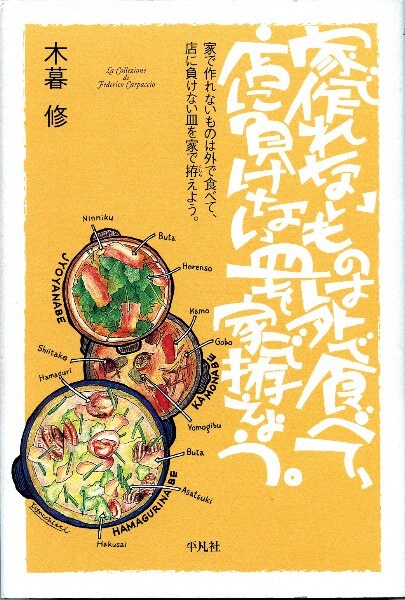 家で作れないものは外で食べて、
店に負けない皿を家で拵えよう。
家で作れないものは外で食べて、
店に負けない皿を家で拵えよう。
こしら
La Collezione
di
Federico Carpaccio
木暮 修
Ninniku
Buta
Horenso
JYOYANABE
Kamo
Gobo
Shiitake
KAMONABE
Hamaguri
Yomogibu
Buta
Asatsuki
HAMAGURINABE
Hakusai
平凡社